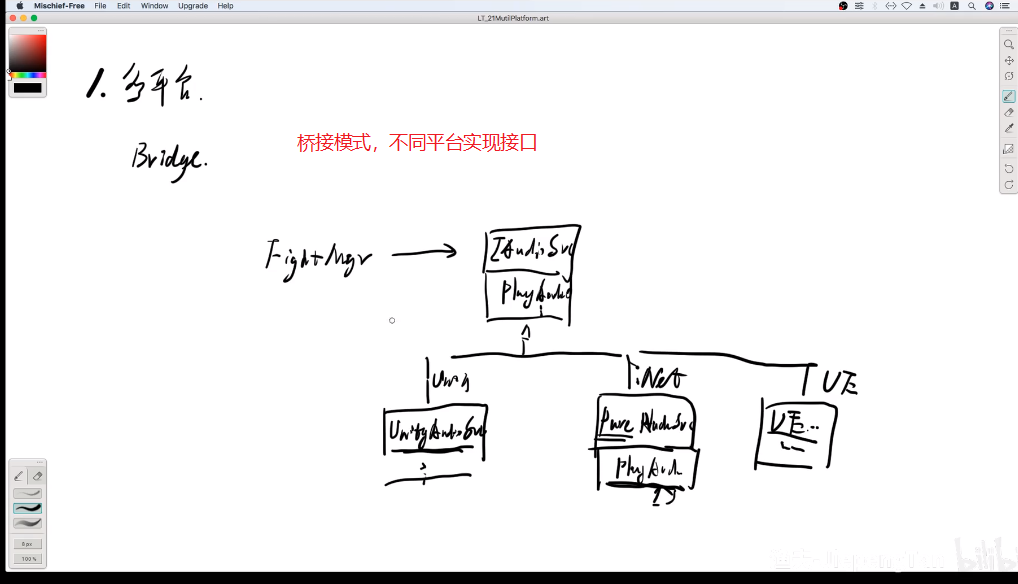 Mischief-Free File Edit Window Upgrade Help
LT_21MutilPlatform.art
1. 多平台.
Bridge.
桥接模式，不同平台实现接口
FightMgr
IAudioSvc
PlayAudio
Unity
.Net
UE
UnityAudioSvc
Pure AudioSvc
UE...
PlayAudi
8 px
100 %
bilibili